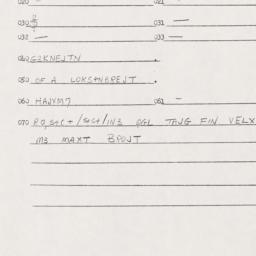 020 021
030 031 —
032 — 033 —
040 G2KNEJTN .
050 OF A LOKS4NBREJT .
060 HAJXM7 061 –
070 OGL TAJG FIN VELX
M3 MAXT BPOJT